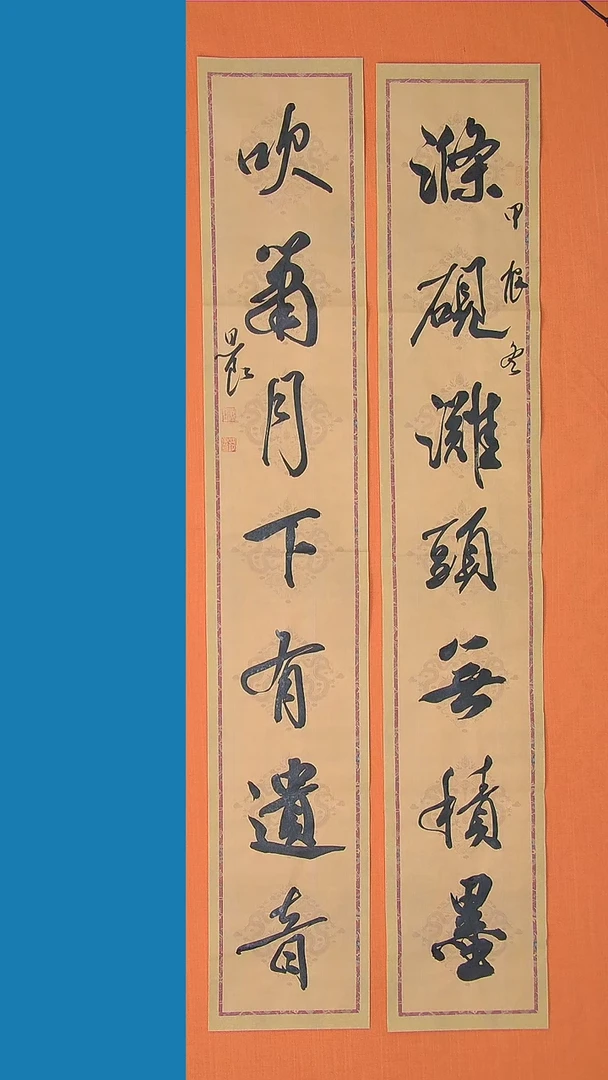 滌硯灘頭無積墨
甲辰冬
吹簫月下有遺音